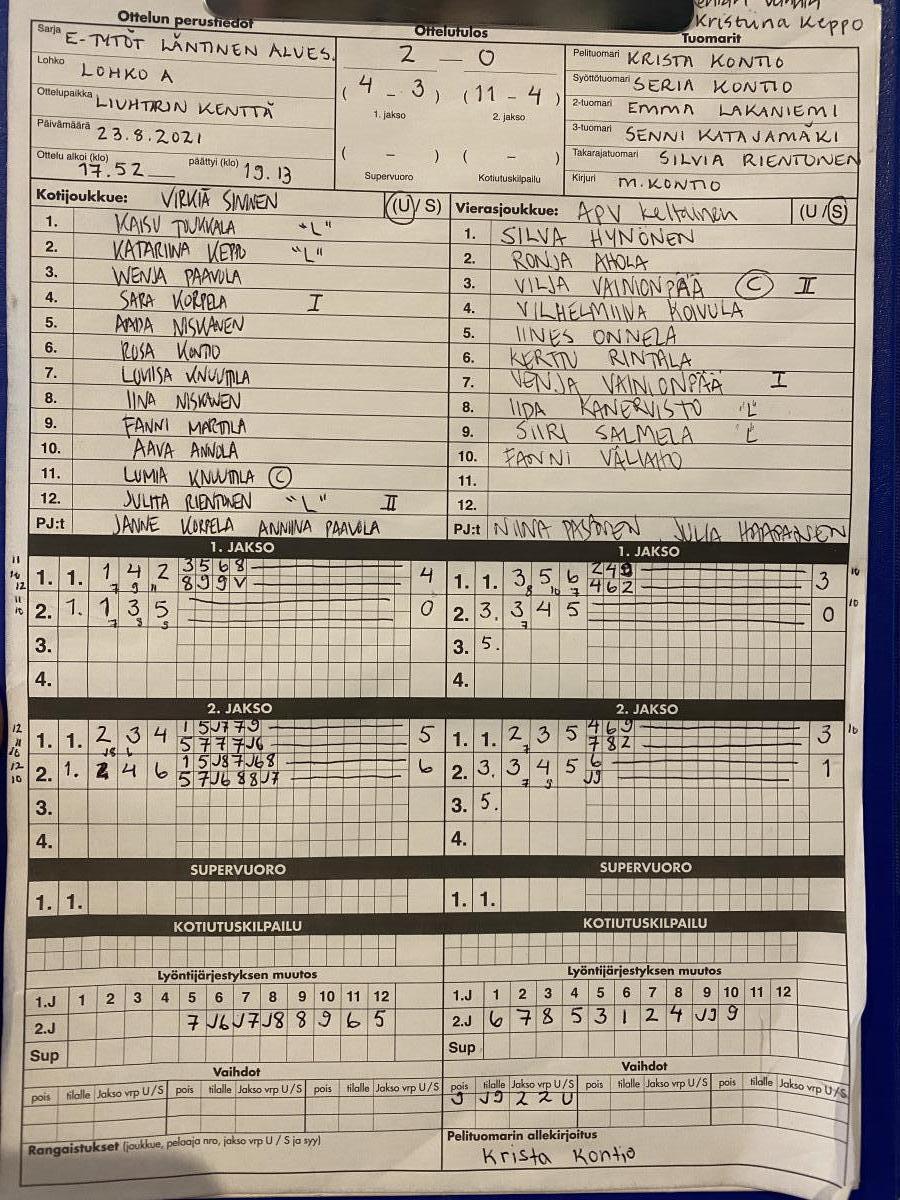 Kristiina Keppo
Ottelun perustiedot
Ottelutulos
Tuomarit
Sarja E-TYTÖT LÄNTINEN ALVES.
Lohko LOHKO A
Ottelupaikka LIUHTARIN KENTTÄ
Päivämäärä 23.8.2021
Ottelu alkoi (klo) 17.52 päättyi (klo) 19.13
2 — 0
( 4 - 3 ) ( 11 - 4 )
1. jakso 2. jakso
( - ) ( - )
Supervuoro Kotiutuskilpailu
Pelituomari KRISTA KONTIO
Syöttötuomari SERIA KONTIO
2-tuomari EMMA LAKANIEMI
3-tuomari SENNI KATAJAMÄKI
Takarajatuomari SILVIA RIENTONEN
Kirjuri M. KONTIO
Kotijoukkue: VIRKIÄ SININEN (U/S)
1. KAISU TOUKKALA "L"
2. KATARIINA KEPPO "L"
3. WENJA PAAVOLA
4. SARA KORPELA I
5. AADA NISKANEN
6. ROSA KONTIO
7. LOVIISA KNUUTILA
8. IINA NISKANEN
9. FANNI MARTTILA
10. AAVA ANNOLA
11. LUMIA KNUUTILA C
12. JULIA RIENTONEN "L" II
PJ:t JANNE KORPELA ANNIINA PAAVOLA
Vierasjoukkue: APV Keltainen (U/S)
1. SILVA HYNÖNEN
2. RONJA AHOLA
3. VILJA VAINIONPÄÄ C II
4. VILHELMIINA KOIVULA
5. IINES ONNELA
6. KERTTU RINTALA
7. VENJA VAINIONPÄÄ I
8. IIDA KANERVISTO "L"
9. SIIRI SALMELA "L"
10. FANNI VÄLIAHO
11.
12.
PJ:t NIINA JULIA HAAPANEN
1. JAKSO
1. 1. 1 4 2 3 5 6 8 4
7 9 11 8 9 9 V
2. 1. 1 3 5 0
3.
4.
1. JAKSO
1. 1. 3 5 6 2 4 9 3
8 10 7 4 6 2
2. 3. 3 4 5 0
7
3. 5.
4.
2. JAKSO
1. 1. 2 3 4 1 5 J7 7 9 5
J8 6 5 7 7 7 J6
2. 1. 2 4 6 1 5 J8 7 J6 8 6
5 7 J6 8 8 J7
3.
4.
2. JAKSO
1. 1. 2 3 5 4 6 9 3
7 8 2
2. 3. 3 4 5 6 1
7 9 J9
3. 5.
4.
SUPERVUORO
1. 1.
SUPERVUORO
1. 1.
KOTIUTUSKILPAILU
KOTIUTUSKILPAILU
Lyöntijärjestyksen muutos
1.J 1 2 3 4 5 6 7 8 9 10 11 12
2.J 7 J6 J7 J8 8 9 6 5
Sup
Lyöntijärjestyksen muutos
1.J 1 2 3 4 5 6 7 8 9 10 11 12
2.J 6 7 8 5 3 1 2 4 J9 9
Sup
Vaihdot
pois tilalle Jakso vrp U/S pois tilalle Jakso vrp U/S pois tilalle Jakso vrp U/S
Vaihdot
pois tilalle Jakso vrp U/S pois tilalle Jakso vrp U/S pois tilalle Jakso vrp U/S
9 J9 2 2 U
Rangaistukset (joukkue, pelaaja nro, jakso vrp U / S ja syy)
Pelituomarin allekirjoitus
Krista Kontio